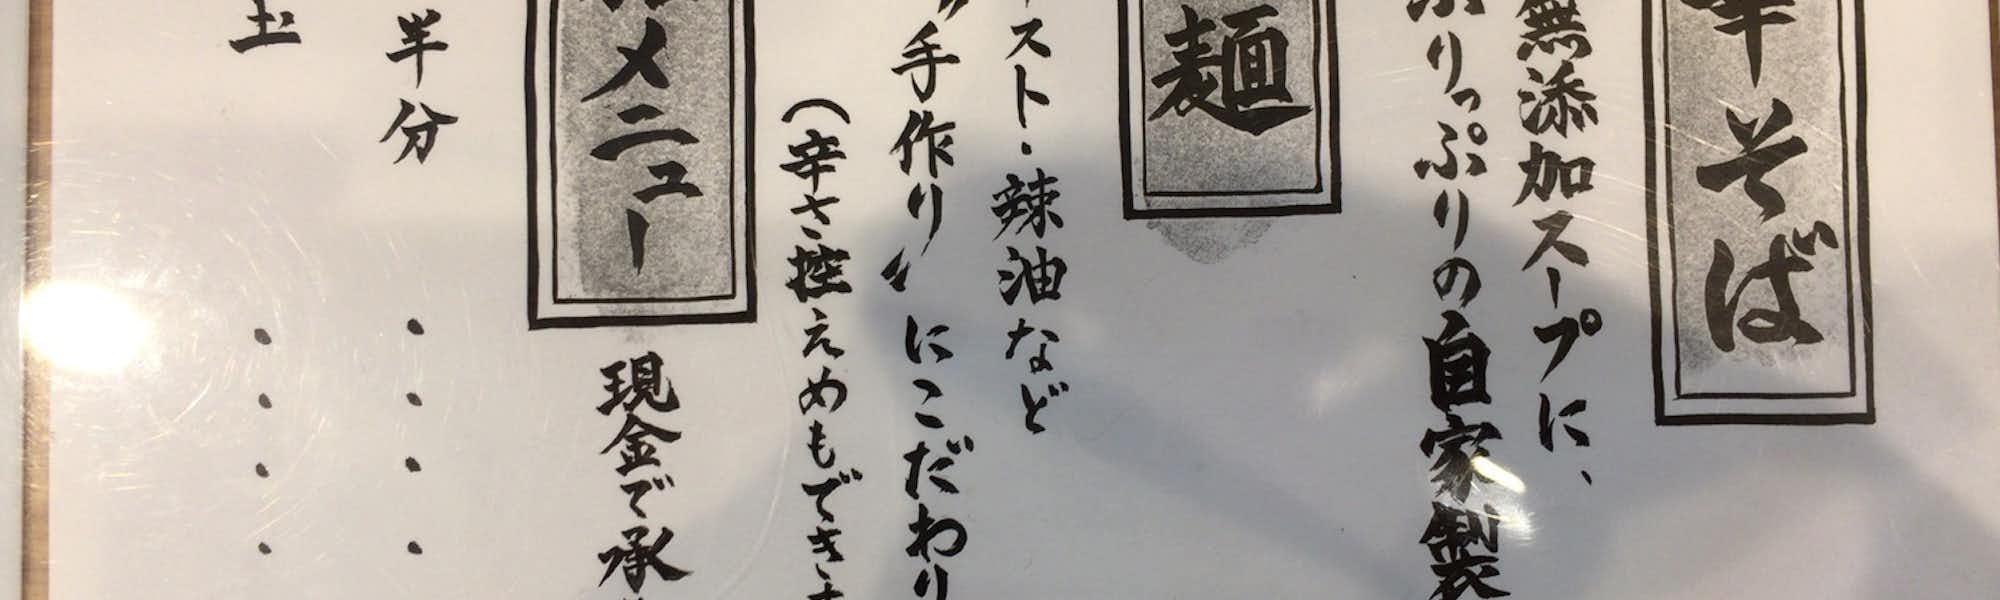 華そば
無添加スープに、
ぷりっぷりの自家製
麺
スト・辣油など
"手作り"にこだわり
(辛さ控えめもできま
メニュー
現金で承
半分
・・・・
・・・・